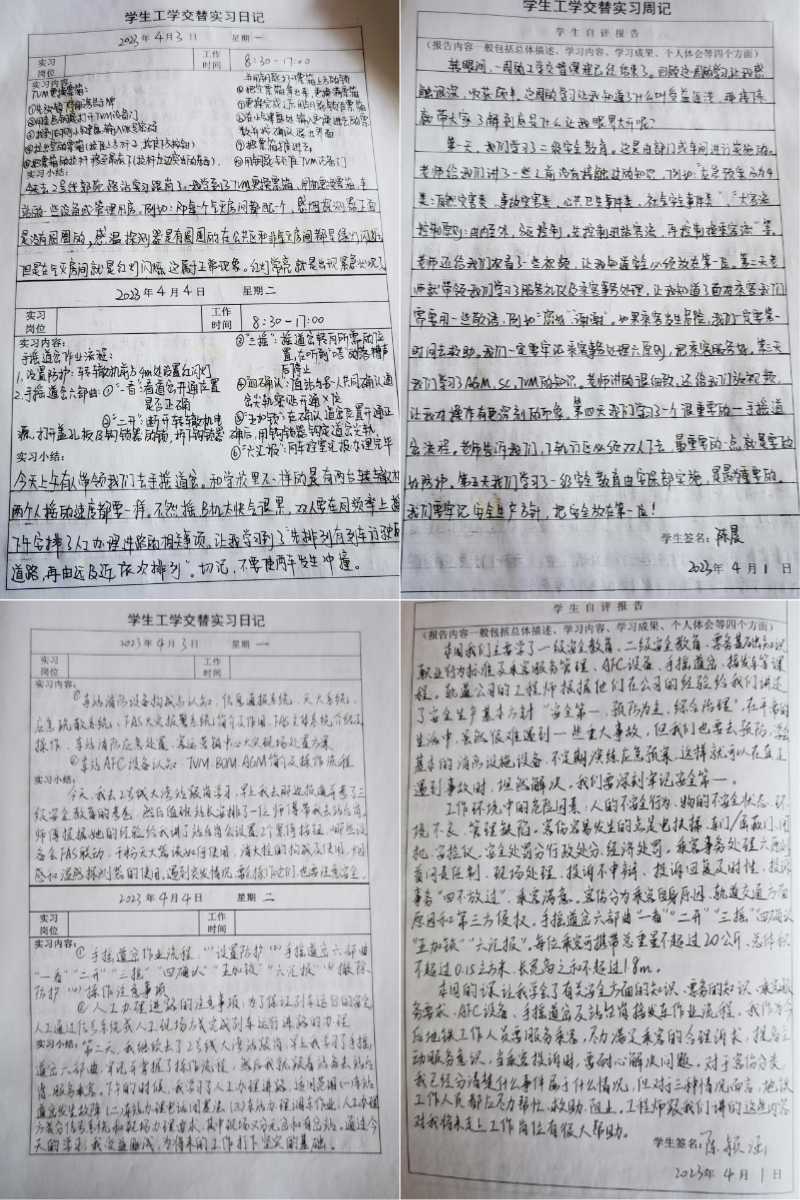 学生工学交替实习日记
2023年4月3日 星期一
实习岗位 工作时间 8:30-17:00
实习内容:
TVM更换票箱:
实习小结:
是没有围圈的,感温探测器是有围圈的在公共区和非气灭房间都是绿灯闪烁,
但是在气灭房间就是红灯闪烁,这属于正常现象。红灯常亮就是出现紧急状况了
2023年4月4日 星期二
实习岗位 工作时间 8:30-17:00
实习内容:
手摇道岔作业流程:
1.设置防护:车转辙机前方4m处设置红闪灯
2.手摇道岔六部曲:①"一看"看道岔开通位置是否正确
②"二开"断开转辙机电源,打开盖孔板及钩锁器的锁,拆下钩锁器
③"三摇":摇道岔转向所需的位置,在听到"喀"的落槽声后停止
④"四确认"
⑤"五加锁":在确认道岔位置开通正确后,用钩锁器锁定道岔尖轨
⑥"六汇报":向车控室汇报办理完毕
实习小结:
今天上午有人带领我们去手摇道岔。和学校里不一样的是有两台转辙机
两个人摇的速度都要一样。不然摇B机太快会误累,双人要在同频率上道
下午安排了人工办理进路的相关事项。让我学习到了"先排列有列车行驶的
道路,再由远及近依次排列"。切记,不要使两车发生冲撞。
学生工学交替实习周记
学生自评报告
(报告内容一般包括总体描述、学习内容、学习成果、个人体会等四个方面)
转眼间,一周的工学交替课程已经结束了。回顾这周的学习让我感
触颇深,收获颇丰。这周的学习让我知道了什么叫受益匪浅,再接下来
底带大家了解到底是什么让我眼界大开呢?
第一天,我们学习了二级安全教育。这是由部门或车间进行实施的。
老师给我们讲了一些之前没有接触过的知识,例如:"应急预案分为4
类:自然灾害类、事故灾害类、公共卫生事件类、社会安全事件类","大客流
控制原则:由内至外、分级控制,先控制进站客流,再控制换乘客流"等。
老师还给我们观看了一些视频,让我知道安全必须放在第一位。第二天老
师就带领我们学习了服务礼仪及乘客事务处理,让我知道了面对乘客我们
需要用一些敬语,例如:"您好""谢谢"。如果乘客发生危险,我们一定要第一
时间去救助。我们一定要牢记乘客事务处理六原则,把乘客服务好。第三天
我们学习了AGM、SC、TVM的知识。老师讲的很细致,还给我们放视频,
让我对操作有更深刻的印象。第四天我们学习了一个很重要的一手摇道
岔流程。老师告诉我们,下轨行区必须双人下去,最重要的一点就是要做
好防护。第五天我们学习了一级安全教育由安保部实施,是最重要的。
我们要牢记安全生产方针,把安全放在第一位!
学生签名:陈晨
2023年4月1日
学生工学交替实习日记
2023年4月3日 星期一
实习岗位 工作时间
实习内容:
①车站消防设备构成与认知,信息通报系统、灭火系统、
应急疏散系统、FAS火灾报警系统简介及作用、FAS主体系统介绍及
操作、车站消防应急处置、客运营销中心火灾现场处置方案
②车站AFC设备认知:TVM、BOM、AGM简介及操作流程
实习小结:
今天,我去2号线人湾站跟岗学习,早上我去那边报道并考了三
级安全教育的考卷,然后值班站长安排了一位师傅带我去站台岗,
师傅根据她的经验给我讲了站台岗会设置2个紧停按钮,哪些设
备会FAS联动,干粉灭火器该如何使用,消火栓的构成及使用,烟
感和温感探测器的使用,遇到突发情况,
2023年4月4日 星期二
实习岗位 工作时间
实习内容:①手摇道岔作业流程:(1)设置防护(2)手摇道岔六部曲
"一看""二开""三摇""四确认""五加锁""六汇报"(3)撤除
防护(4)操作注意事项
②人工办理进路的注意事项:为了保证列车运行的安全,
人工通过信号系统或人工现场方式完成列车运行进路的办理
实习小结:第二天,我继续去了2号线人湾站跟岗,早上我学习了手摇
道岔六部曲,牢记并掌握了操作流程,然后我就跟着站务去站台
岗,服务乘客。下午的时候,我学习了人工办理进路,适用范围(一)车站
道岔发生故障(二)车站办理电话闭塞法(三)车站办理调车作业;人工办理
方式分信号系统和现场办理要求,其中现场又分无岔和有岔站。通过今
天的学习,我受益匪浅,为将来的工作打下坚实的基础。
学生自评报告
(报告内容一般包括总体描述、学习内容、学习成果、个人体会等四个方面)
本周我们主要学了一级安全教育、二级安全教育、票务基础知识
职业行为标准及乘客服务管理、AFC设备、手摇道岔、接发车等课
程。轨道公司的工程师根据他们在公司的经验给我们讲述
了安全生产基本方针"安全第一,预防为主,综合治理",在平常的
生活中,虽然很难遇到一些重大事故,但我们也要去预防,掌握
基本的消防设施设备,不定期演练应急预案,这样就可以在真正
遇到事故时,坦然解决。我们要深刻牢记安全第一。
工作环境中的危险因素:人的不安全行为、物的不安全状态、环
境不良、管理缺陷。客伤容易发生的点是电扶梯、车门/屏蔽门、闸
机、安检仪。安全处罚分行政处分、经济处罚。乘客事务处理六原则
首问责任制、现场处理、投诉不申辩、投诉回复及时性、投诉
事务"四不放过"、乘客满意。客伤分为乘客自身原因、轨道交通方面
原因和第三方侵权。手摇道岔六部曲"一看""二开""三摇""四确认"
"五加锁""六汇报"。每位乘客可携带总重量不超过20公斤、总体积
不超过0.15立方米、长宽高之和不超过1.8m。
本周的课让我学会了有关安全方面的知识、票务的知识、乘客服
务要求、AFC设备、手摇道岔及站台岗接发车作业流程。我作为今
后地铁工作人员要服务乘客,尽力满足乘客的合理诉求,提高主
动服务意识,当乘客投诉时,要耐心解决问题。对于客伤分类,
我已经分清楚什么事件属于什么情况,但对于三种情况而言,地铁
工作人员都应尽力帮忙、救助、阻止。工程师跟我们讲的这些内容
对我将来走上工作岗位有很大帮助。
学生签名:陈颖涵
2023年4月1日